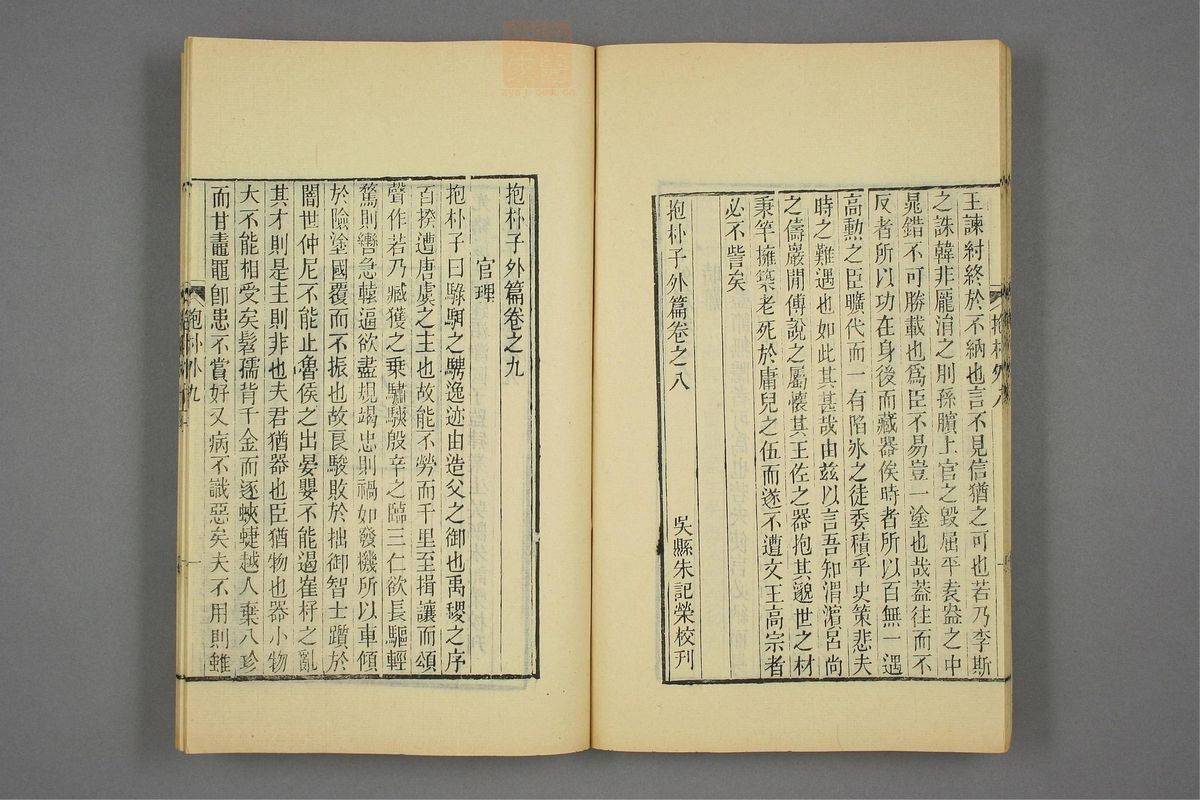 王諫紂終於不納也言不見信猶之可也若乃李斯
之誅韓非龐涓之刖孫臏上官之毀屈平袁盎之中
晁錯不可勝載也爲臣不易豈一塗也哉蓋往而不
反者所以功在身後而藏器俟時者所以百無一遇
高勳之臣曠代而一有陷冰之徒委積乎史策悲夫
時之難遇也如此其甚哉由茲以言吾知渭濱呂尚
之儔巖閒傅說之屬懷其王佐之器抱其邈世之材
秉竿擁築老死於庸兒之伍而遂不遭文王高宗者
必不訾矣
抱朴子外篇卷之八
吳縣朱記榮校刊
抱朴外八
抱朴子外篇卷之九
官理
抱朴子曰騄駬之騁逸迹由造父之御也禹稷之序
百揆遭唐虞之主也故能不勞而千里至揖讓而頌
聲作若乃臧獲之乘驌驦殷辛之臨三仁欲長驅輕
騖則轡急轅逼欲盡規竭忠則禍如發機所以車傾
於險塗國覆而不振也故良駿敗於拙御智士躓於
闇世仲尼不能止魯侯之出晏嬰不能遏崔杼之亂
其才則是主則非也夫君猶器也臣猶物也器小物
大不能相受矣髫孺背千金而逐蛺蜨越人棄八珍
而甘鼃黽卽患不賞好又病不識惡矣夫不用則雖
抱朴外九